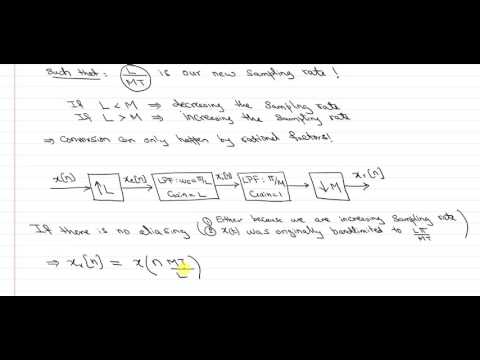 Such that: L/MT is our new sampling rate!
If L < M ⇒ decreasing the sampling rate
If L > M ⇒ increasing the sampling rate
⇒ Conversion can only happen by rational factors!
x[n] ↑L xe[n] LPF: ωc=π/L Gain=L xi[n] LPF: π/M Gain=1 ↓M xr[n]
If there is no aliasing (① Either because we are increasing sampling rate
② x(t) was originally bandlimited to Lπ/MT)
⇒ xr[n] = x(n MT/L)